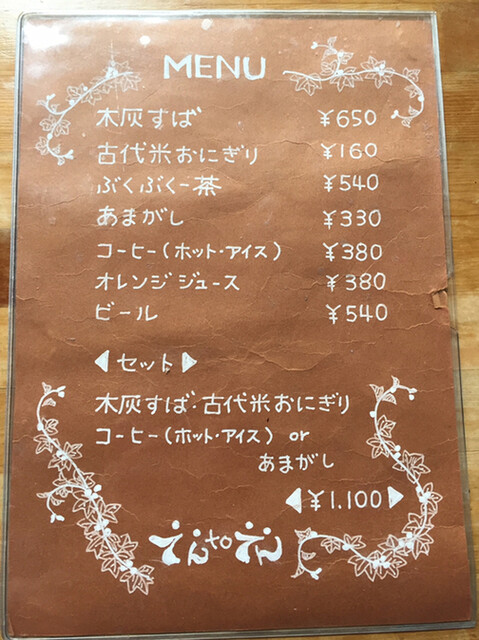 MENU
木灰すば ¥650
古代米おにぎり ¥160
ぶくぶくー茶 ¥540
あまがし ¥330
コーヒー(ホット・アイス) ¥380
オレンジジュース ¥380
ビール ¥540
◀セット▶
木灰すば・古代米おにぎり
コーヒー(ホット・アイス) or
あまがし
◀¥1.100▶
えんtoえん